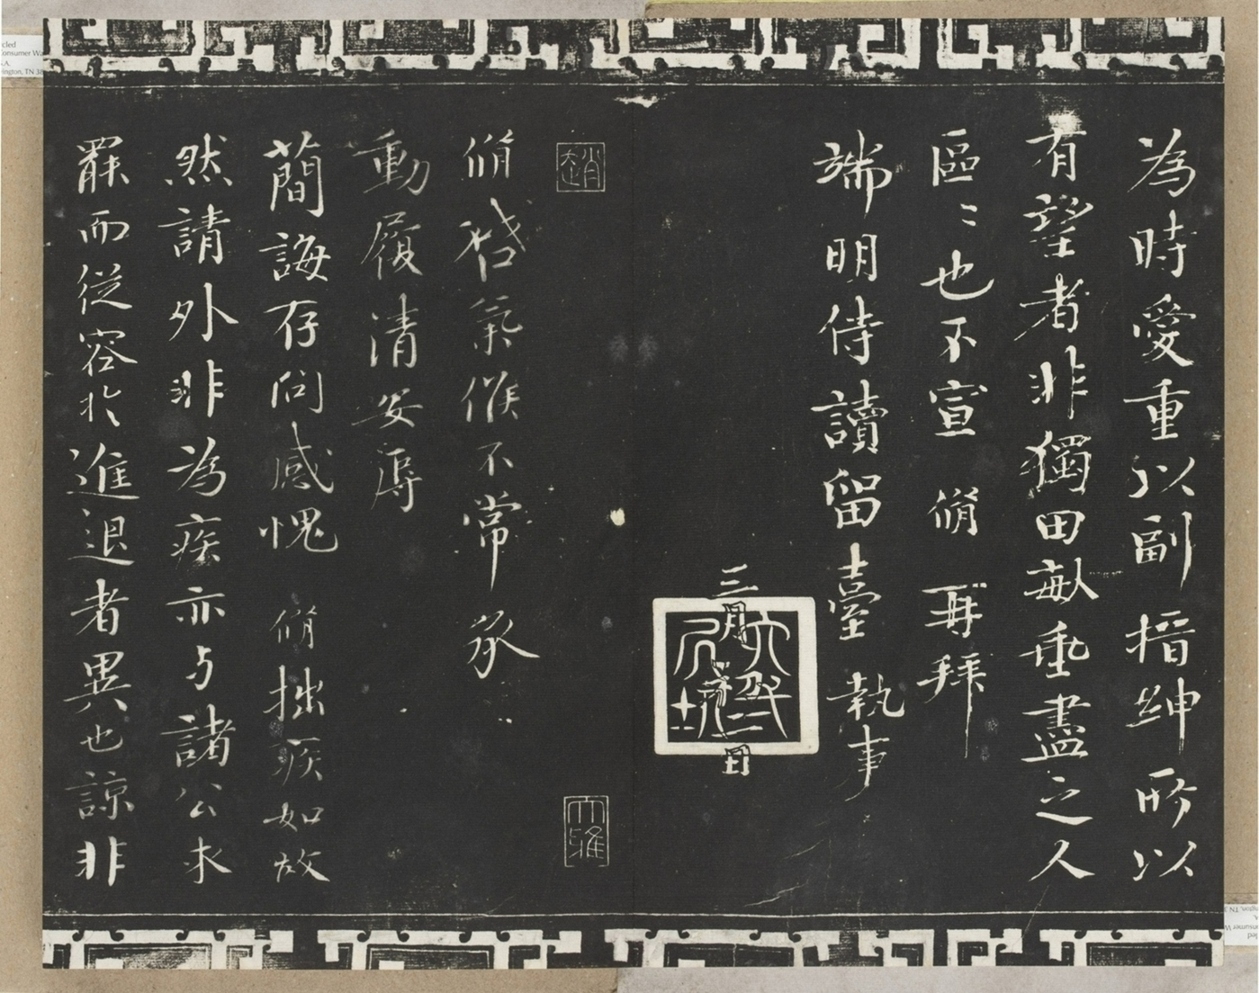 為時愛重以副搢紳所以
有望者非獨田畝垂盡之人
區區也不宣脩再拜
端明侍讀留臺執事
三月二日
脩啓氣候不常承
動履清安辱
簡誨存問感愧脩拙疾如故
然請外非為疾亦与諸公求
罷而従容於進退者異也諒非